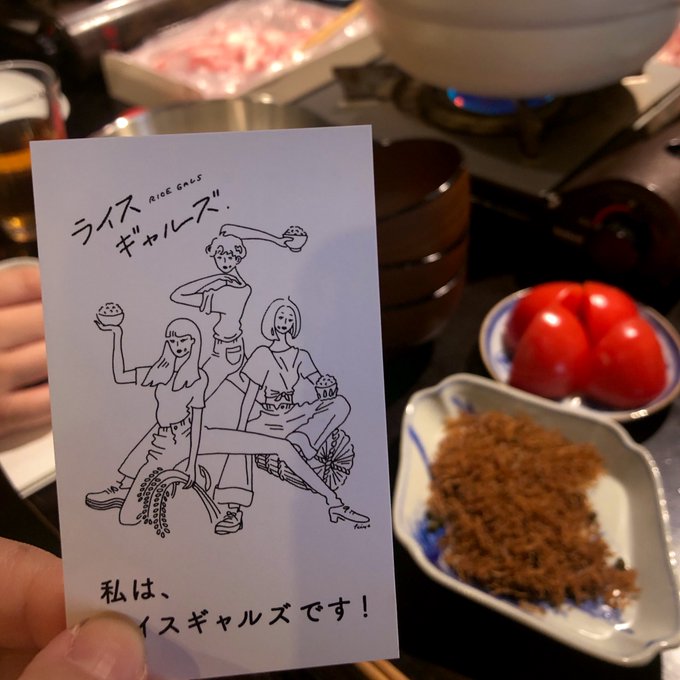 ライス
RICE GALS
ギャルズ.
私は、
イスギャルズです！